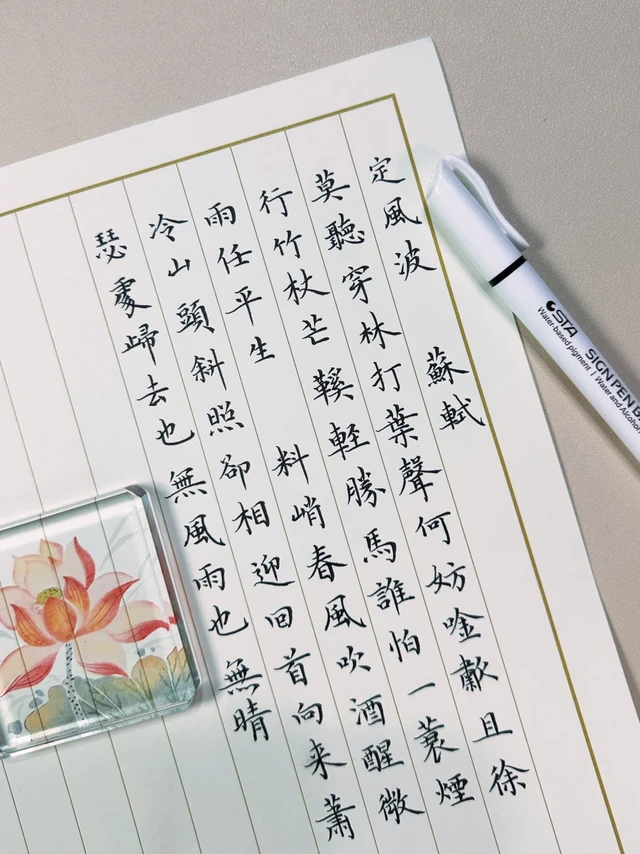 定風波 蘇軾
莫聽穿林打葉聲何妨唫歗且徐
行竹杖芒鞵軽勝馬誰怕一蓑煙
雨任平生 料峭春風吹酒醒微
冷山頭斜照卻相迎回首向来蕭
瑟處歸去也無風雨也無晴
STA SIGN PEN
Water-based pigment | Water and Alcohol